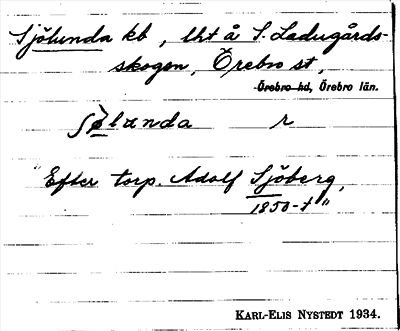 Sjölunda kb, lht å S. Ladugårds-
skogen, Örebro st,
Örebro hd, Örebro län.
r
"Efter torp. Adolf Sjöberg,
1850-t"
KARL-ELIS NYSTEDT 1934.